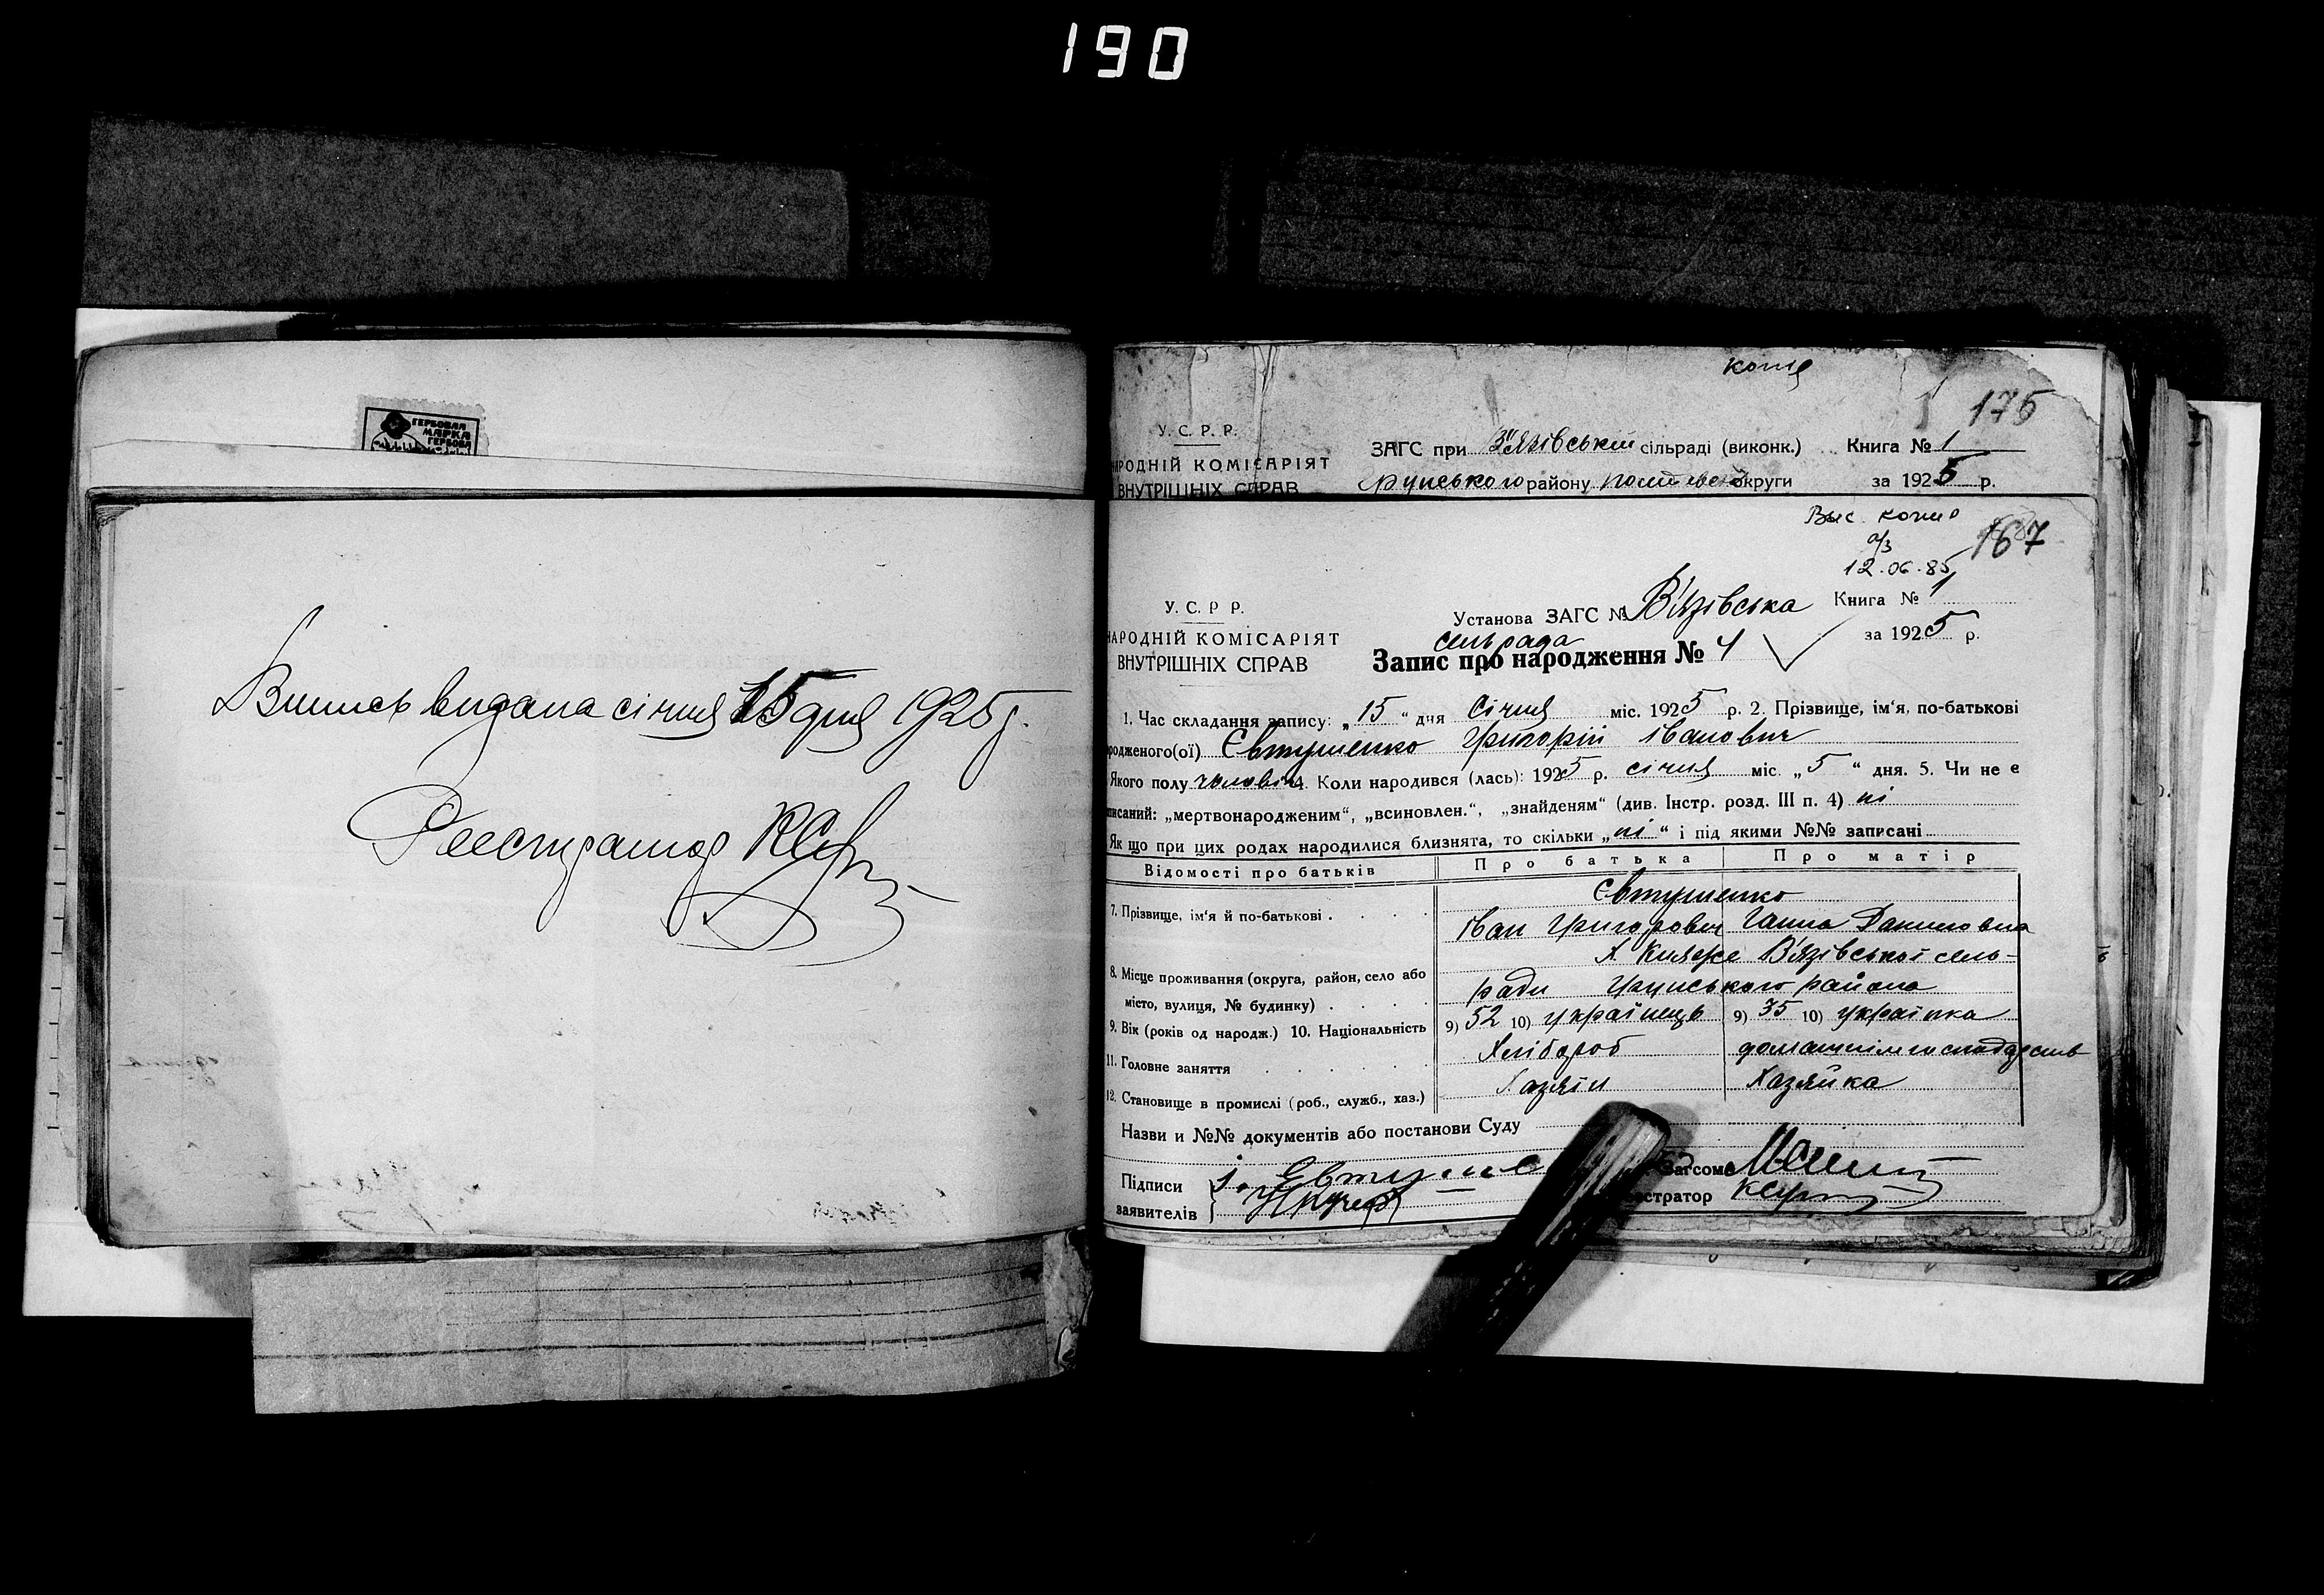 190
ГЕРБОВАЯ
МАРКА
ГЕРБОВА
Випись видана січня 15 дня 1925 р.
Реєстратор
копія
175
У. С. Р. Р.
РОДНІЙ КОМІСАРІЯТ
ВНУТРІШНІХ СПРАВ
ЗАГС при В'язівській сільраді (виконк.) Книга № 1
Грунського району Полтавської округи за 1925 р.
Выс. копия
а/з
12.06.85
167
У. С. Р. Р.
НАРОДНІЙ КОМІСАРІЯТ
ВНУТРІШНІХ СПРАВ
Установа ЗАГС № В'язівська Книга № 1
сельрада за 1925 р.
Запис про народження № 4
1. Час складання запису: „15“ дня Січня міс. 1925 р. 2. Прізвище, ім'я, по-батькові
родженого(ої) Євтушенко Григорій Іванович
Якого полу чоловіч 4. Коли народився (лась): 1925 р. січня міс. „5“ дня. 5. Чи не є
писаний: „мертвонародженим“, „всиновлен.“, „знайденям“ (див. Інстр. розд. III п. 4) ні
Як що при цих родах народилися близнята, то скільки „ні“ і під якими №№ записані
Відомості про батьків Про батька Про матір
Євтушенко
7. Прізвище, ім'я й по-батькові Іван Григорович Ганна Даниловна
Х. Княже В'язівської сель-
8. Місце проживання (округа, район, село або
місто, вулиця, № будинку) ради Грунського района
9. Вік (років од народж.) 10. Національність 9) 52 10) українець 9) 35 10) українка
11. Головне заняття Хлібороб домашнім господарств
12. Становище в промислі (роб., служб., хаз.) Хазяїн Хазяйка
Назви и №№ документів або постанови Суду
Підписи
заявителів
І. Євтуше
Загсом
стратор